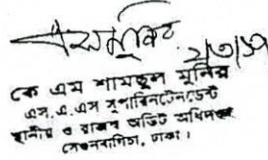 কে এম শামছুল মুনির
এস, এ, এস সুপারিনটেনডেন্ট
স্থানীয় ও রাজস্ব অডিট অধিদপ্তর
সেগুনবাগিচা, ঢাকা।